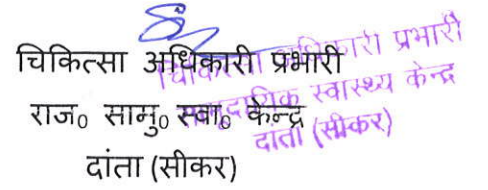 चिकित्सा अधिकारी प्रभारी
राज० सामु० स्वा० केन्द्र
दांता (सीकर)
चिकित्सा अधिकारी प्रभारी
सामुदायिक स्वास्थ्य केन्द्र
दांता (सीकर)